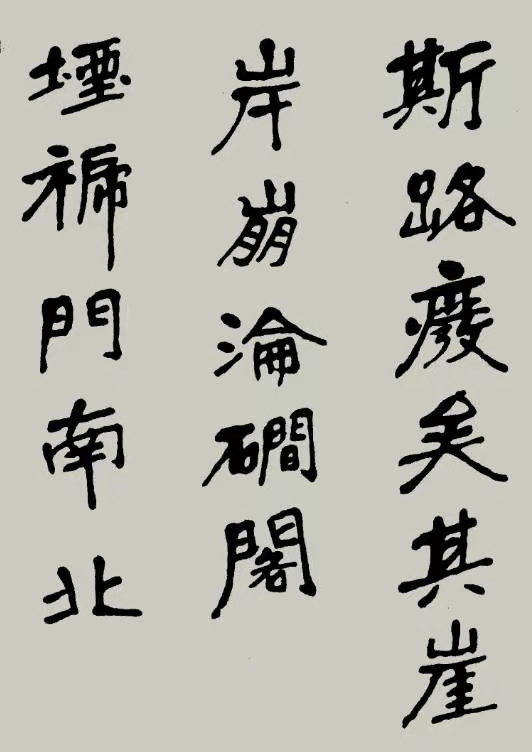 斯路癈矣其崖
岸崩淪磵閣
堙褫門南北